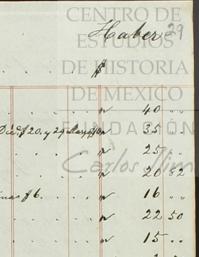 CENTRO DE
ESTUDIOS
DE HISTORIA
DE MEXICO
FUNDACIÓN
Carlos Slim
Haber 29
$
" 40 " "
" 35 " "
" 25 " "
" 20 82
$6. " 16 " "
" 22 50
" 15 " "